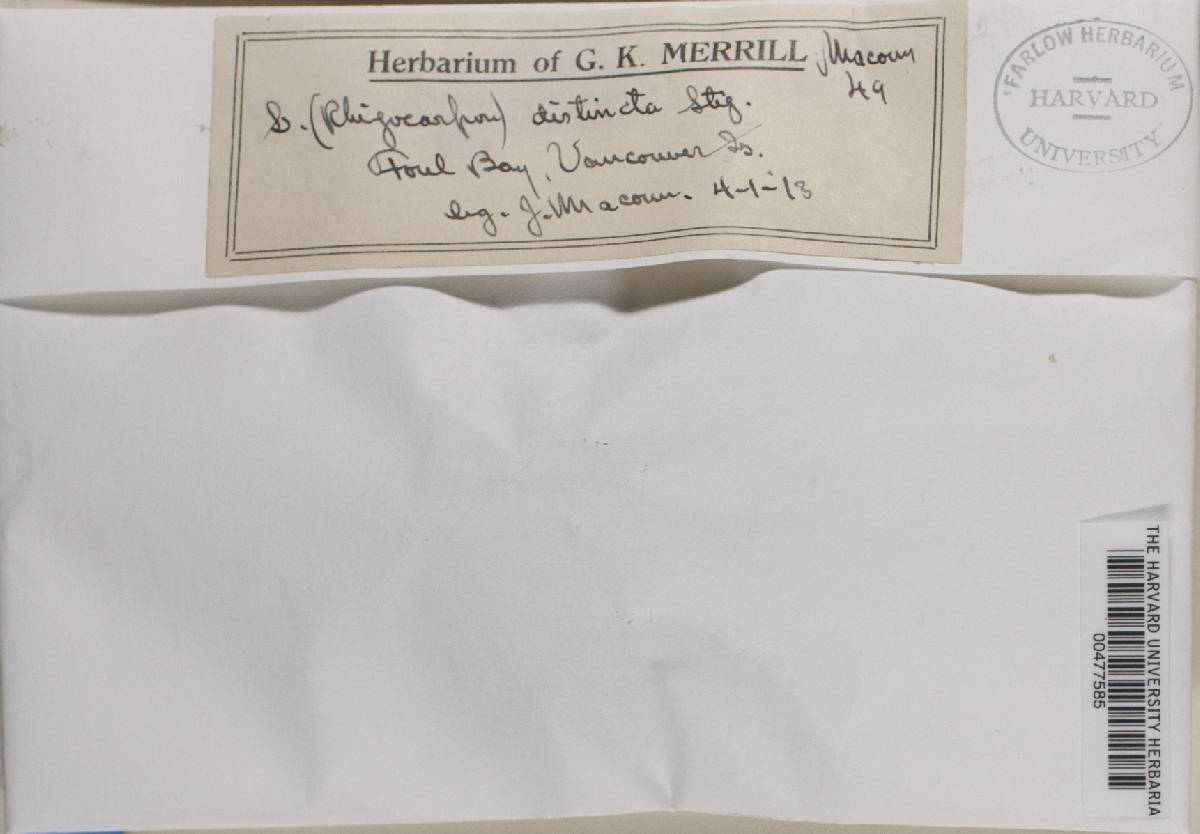 Herbarium of G. K. MERRILL
Macoun
49
L. (Rhizocarpon) distincta Stzg.
Foul Bay, Vancouver Is.
leg. J. Macoun. 4-1-13
FARLOW HERBARIUM
HARVARD
UNIVERSITY
THE HARVARD UNIVERSITY HERBARIA
00477585